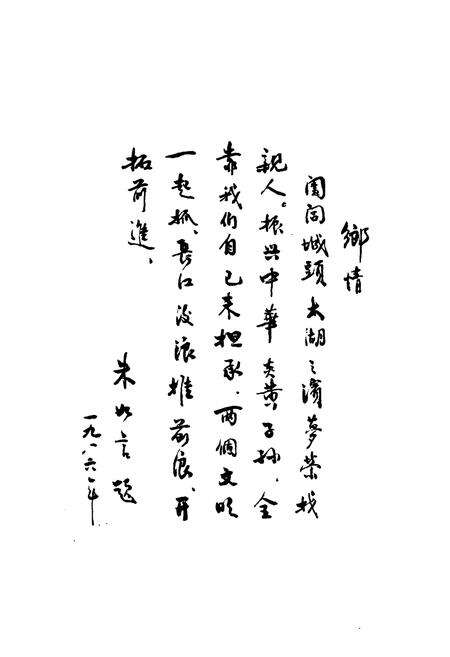 鄉情
閶闔城頭太湖之濱夢縈找
親人。振兴中華炎黄子孙，全
靠我们自己来担承。两個文明
一起抓、長江後浪推前浪、开
拓前進、
朱如言题
一九八六年